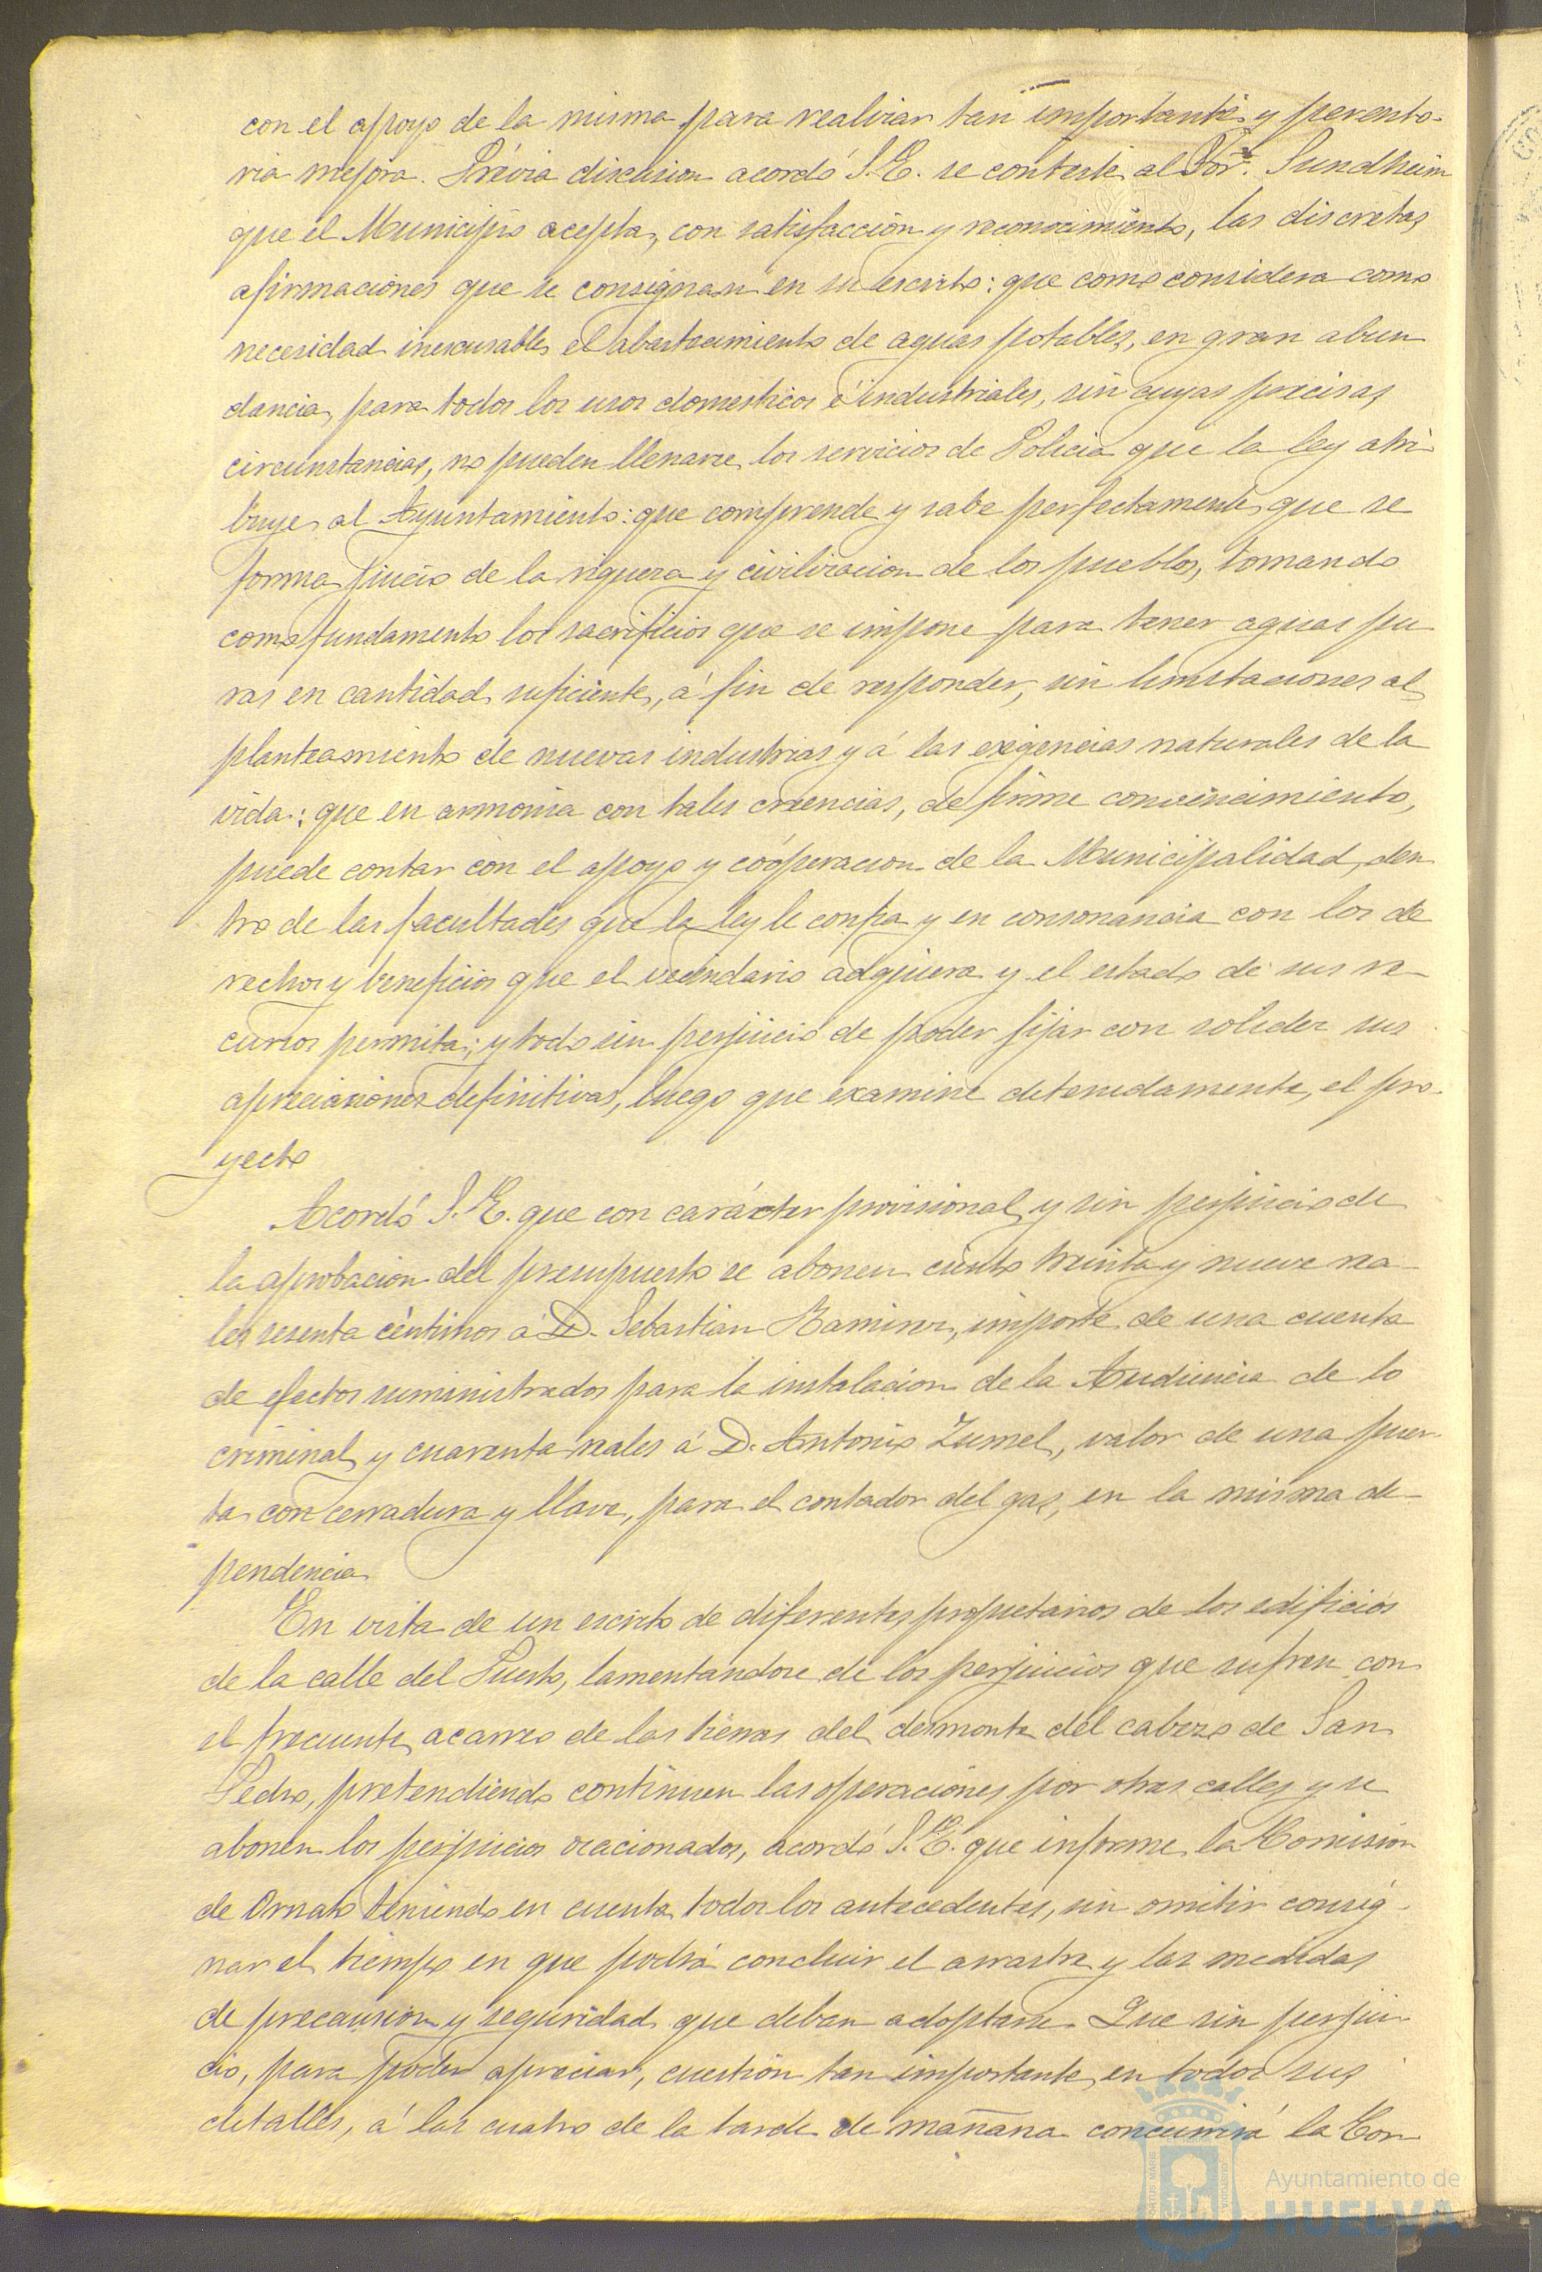 con el apoyo de la misma para realizar tan importante y perento-
ria mejora. Prévia discusion acordó S.E. se conteste al Sor. Sundheim
que el Municipio acepta, con satisfacción y reconocimiento, las discretas
afirmaciones que se consignan en su escrito: que como considera como
necesidad inescusable el abastecimiento de aguas potables, en gran abun
dancia, para todos los usos domesticos é industriales, sin cuyas precisas
circunstancias, no pueden llenarse los servicios de Policia que la ley atri
buye al Ayuntamiento: que comprende y sabe perfectamente que se
forma juicio de la riqueza y civilizacion de los pueblos, tomando
como fundamento los sacrificios que se impone para tener aguas pu
ras en cantidad suficiente, á fin de responder, sin limitaciones al
planteamiento de nuevas industrias y á las exigencias naturales de la
vida: que en armonia con tales creencias, de firme convencimiento,
puede contar con el apoyo y coóperacion de la Municipalidad, den
tro de las facultades que la ley le confia y en consonancia con los de
rechos y beneficios que el vecindario adquiera y el estado de sus re-
cursos permita; y todo sin perjuicio de poder fijar con solidez sus
apreciaciones definitivas, luego que examine detenidamente, el pro-
yecto
Acordó S.E. que con carácter provisional y sin perjuicio de
la aprobacion del presupuesto se abonen ciento treinta y nueve rea-
les sesenta céntimos á D. Sebastian Ramirez, importe de una cuenta
de efectos suministrados para la instalacion de la Audiencia de lo
criminal y cuarenta reales á D. Antonio Zumel, valor de una puer-
ta con cerradura y llave, para el contador del gas, en la misma de-
pendencia
En vista de un escrito de diferentes propietarios de los edificios
de la calle del Puerto, lamentandose de los perjuicios que sufren con
el frecuente acarreo de las tierras del desmonte del cabezo de San
Pedro, pretendiendo continuen las operaciones por otras calles y se
abonen los perjuicios ocacionados, acordó S.E. que informe la Comision
de Ornato teniendo en cuenta todos los antecedentes, sin omitir consig-
nar el tiempo en que podrá concluir el arrastre y las medidas
de precausion y seguridad que deban adoptarse. Que sin perjui-
cio, para poder apreciar, cuestion tan importante, en todos sus
detalles, á las cuatro de la tarde de mañana concurrirá la Cor
Ayuntamiento de
HUELVA